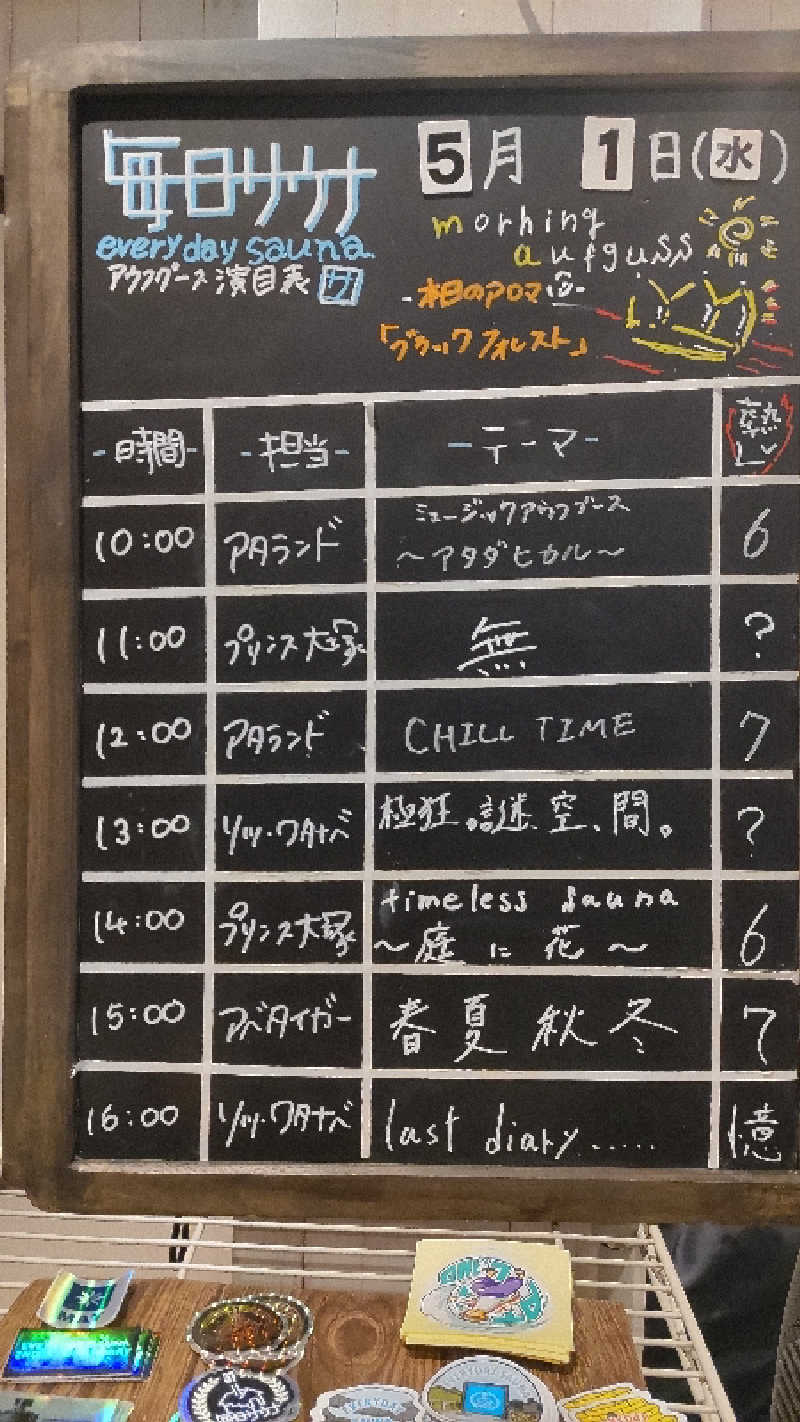 毎日サウナ
5月 1日(水)
everyday sauna.
アウフグース演目表
morning
aufguss
-本日のアロマ-
「ブラックフォレスト」
-時間- -担当- -テーマ- 熱レベ
10:00 アタランド ミュージックアウフグース 6
〜アタダヒカル〜
11:00 プリンス大塚 無 ?
12:00 アタランド CHILL TIME 7
13:00 リッツ・ワタナベ 極狂。謎、空、間。 ?
14:00 プリンス大塚 timeless sauna 6
〜庭に花〜
15:00 アベタイガー 春夏秋冬 7
16:00 リッツ・ワタナベ last diary...... 憶